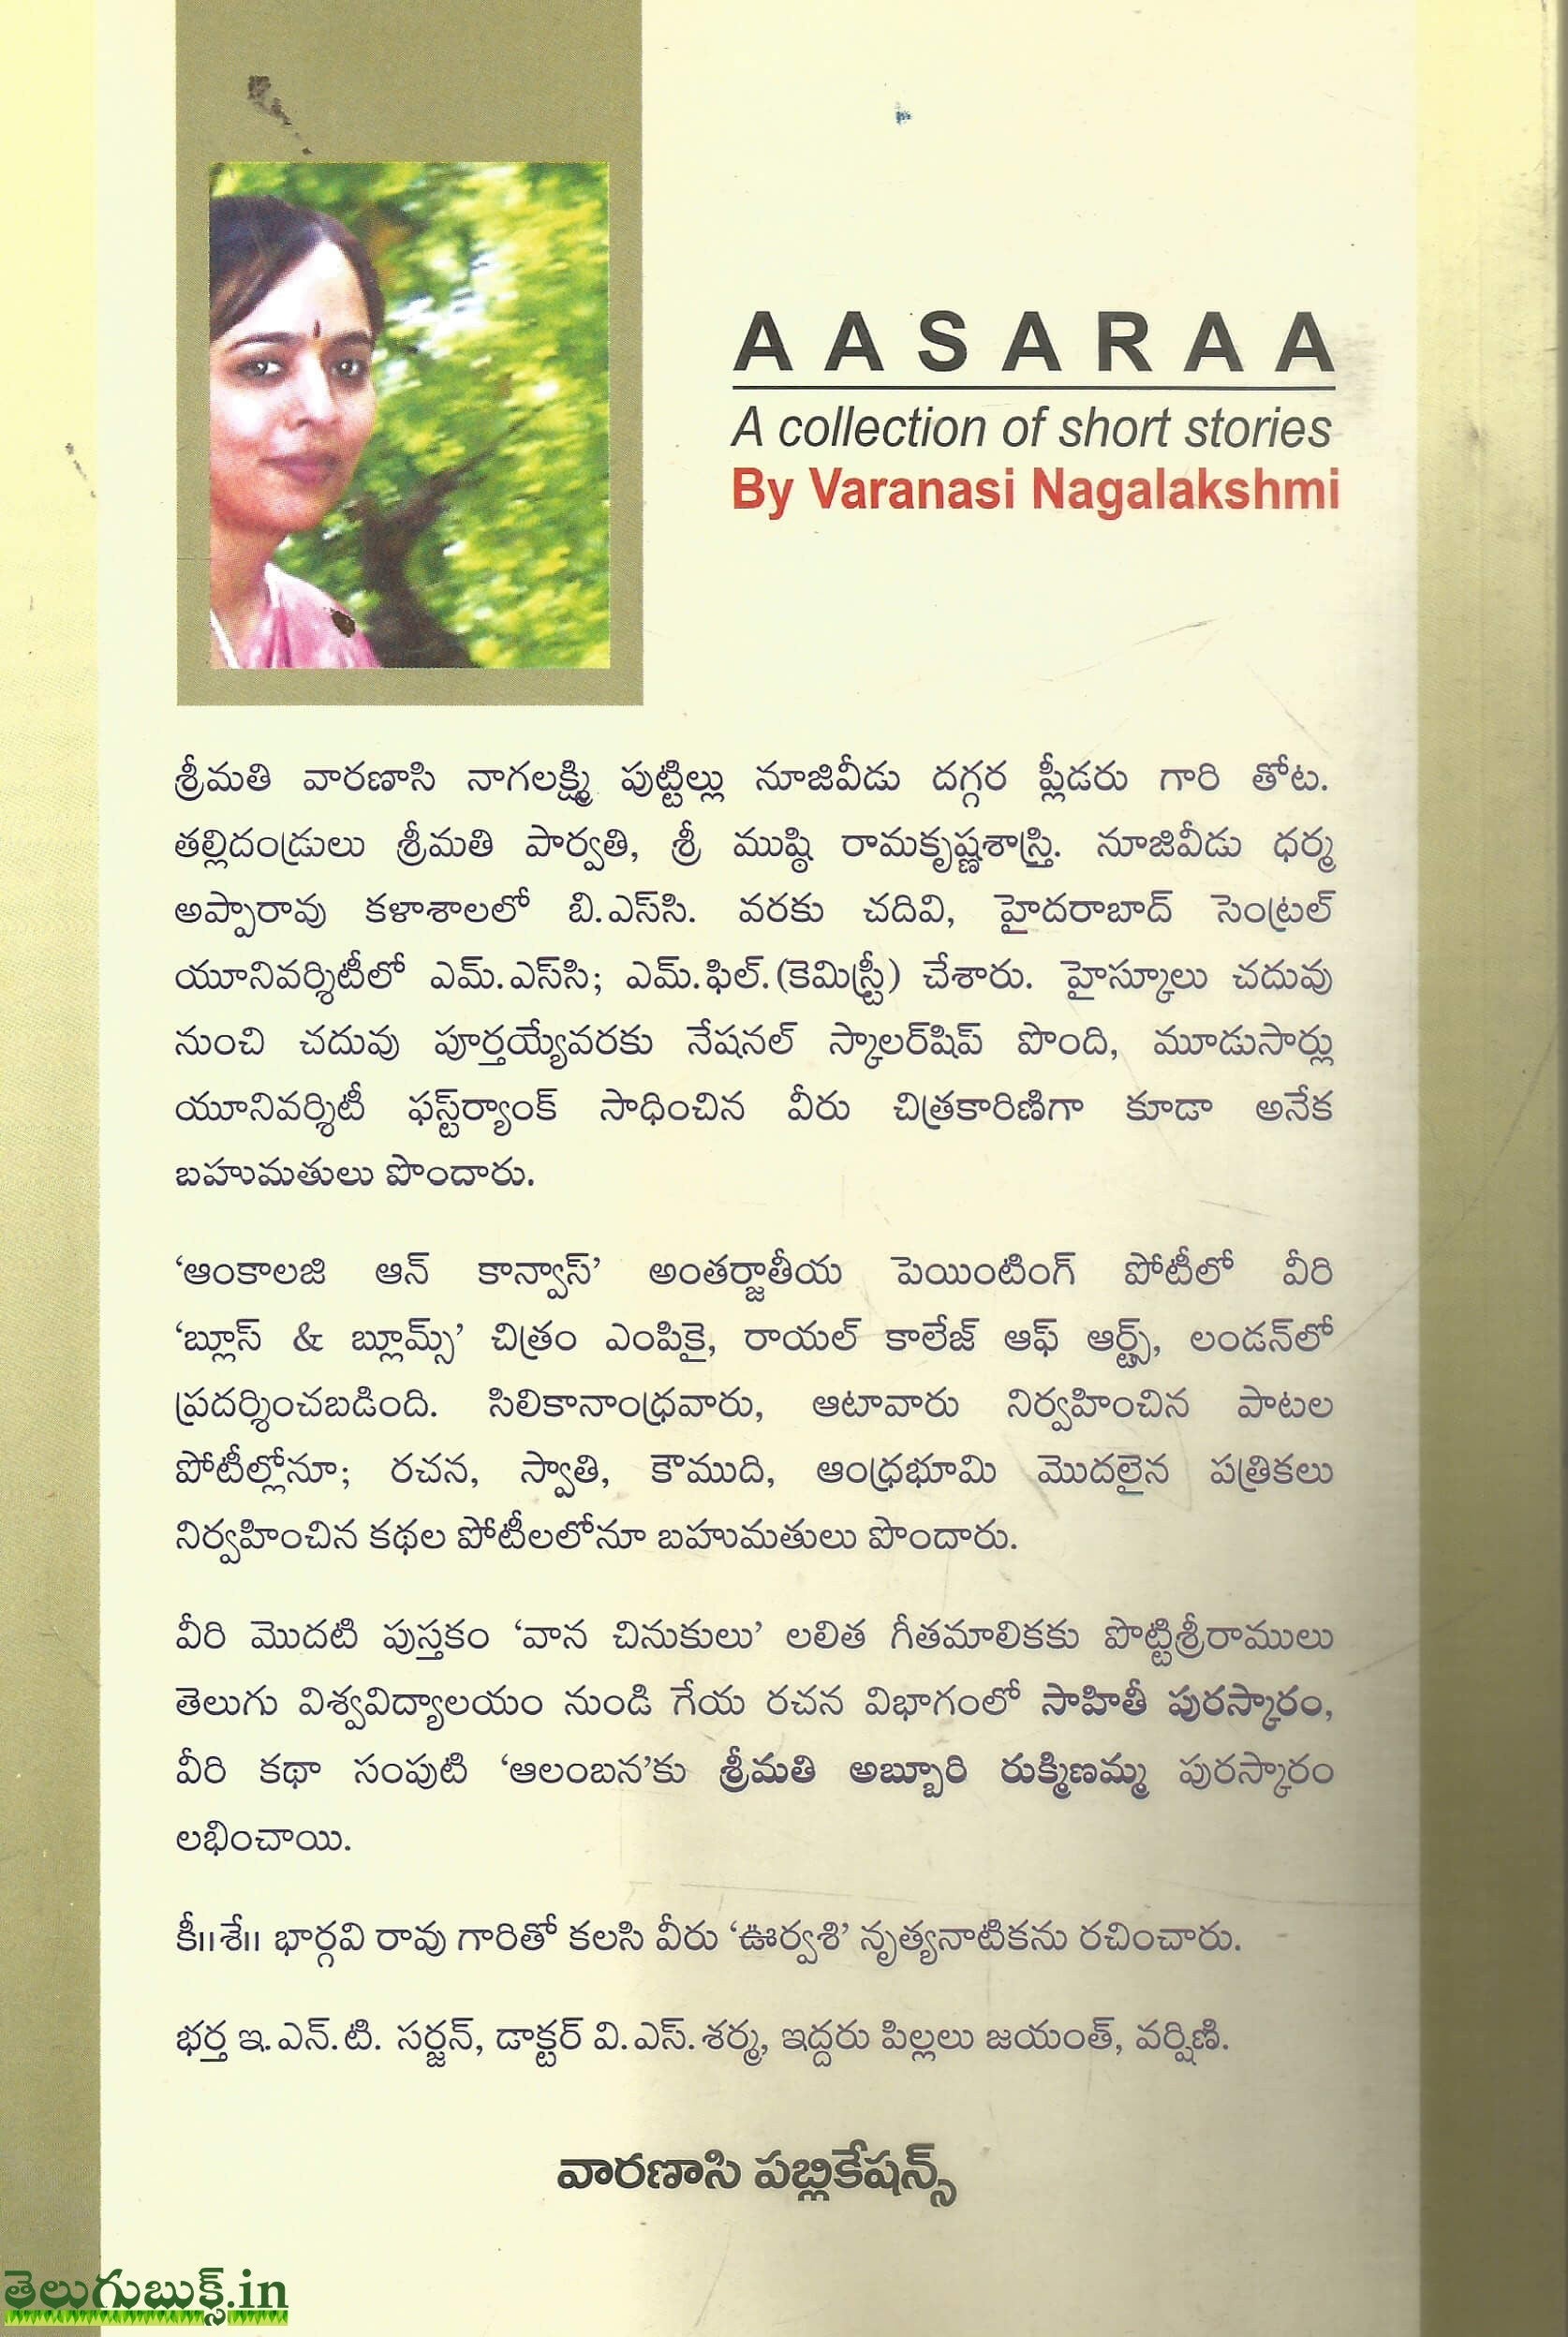 A A S A R A A
A collection of short stories
By Varanasi Nagalakshmi
శ్రీమతి వారణాసి నాగలక్ష్మి పుట్టిల్లు నూజివీడు దగ్గర ప్లీడరు గారి తోట.
తల్లిదండ్రులు శ్రీమతి పార్వతి, శ్రీ ముష్ఠి రామకృష్ణశాస్త్రి. నూజివీడు ధర్మ
అప్పారావు కళాశాలలో బి.ఎస్‌సి. వరకు చదివి, హైదరాబాద్ సెంట్రల్
యూనివర్శిటీలో ఎమ్.ఎస్‌సి; ఎమ్.ఫిల్.(కెమిస్ట్రీ) చేశారు. హైస్కూలు చదువు
నుంచి చదువు పూర్తయ్యేవరకు నేషనల్ స్కాలర్‌షిప్ పొంది, మూడుసార్లు
యూనివర్శిటీ ఫస్ట్‌ర్యాంక్ సాధించిన వీరు చిత్రకారిణిగా కూడా అనేక
బహుమతులు పొందారు.
‘ఆంకాలజి ఆన్ కాన్వాస్’ అంతర్జాతీయ పెయింటింగ్ పోటీలో వీరి
‘బ్లూస్ & బ్లూమ్స్’ చిత్రం ఎంపికై, రాయల్ కాలేజ్ ఆఫ్ ఆర్ట్స్, లండన్‌లో
ప్రదర్శించబడింది. సిలికానాంధ్రవారు, ఆటావారు నిర్వహించిన పాటల
పోటీల్లోనూ; రచన, స్వాతి, కౌముది, ఆంధ్రభూమి మొదలైన పత్రికలు
నిర్వహించిన కథల పోటీలలోనూ బహుమతులు పొందారు.
వీరి మొదటి పుస్తకం ‘వాన చినుకులు’ లలిత గీతమాలికకు పొట్టిశ్రీరాములు
తెలుగు విశ్వవిద్యాలయం నుండి గేయ రచన విభాగంలో సాహితీ పురస్కారం,
వీరి కథా సంపుటి ‘ఆలంబన’కు శ్రీమతి అబ్బూరి రుక్మిణమ్మ పురస్కారం
లభించాయి.
కీ॥శే॥ భార్గవి రావు గారితో కలసి వీరు ‘ఊర్వశి’ నృత్యనాటికను రచించారు.
భర్త ఇ.ఎన్.టి. సర్జన్, డాక్టర్ వి.ఎస్.శర్మ, ఇద్దరు పిల్లలు జయంత్, వర్షిణి.
వారణాసి పబ్లికేషన్స్
తెలుగుబుక్స్.in